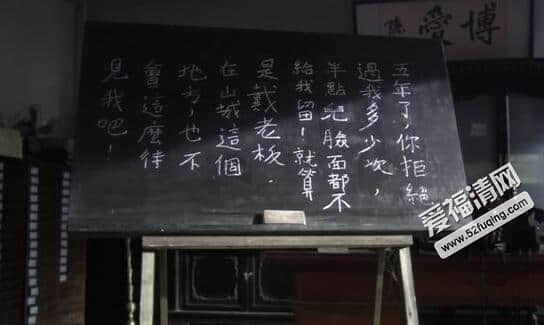 博愛
五年了,你拒絕
過我多少次,
半點兒臉面都不
給我留!就算
是戴老板.
在山城這個
地方,也不
會這麼待
見我吧!
爱福清网
www.52fuqing.com